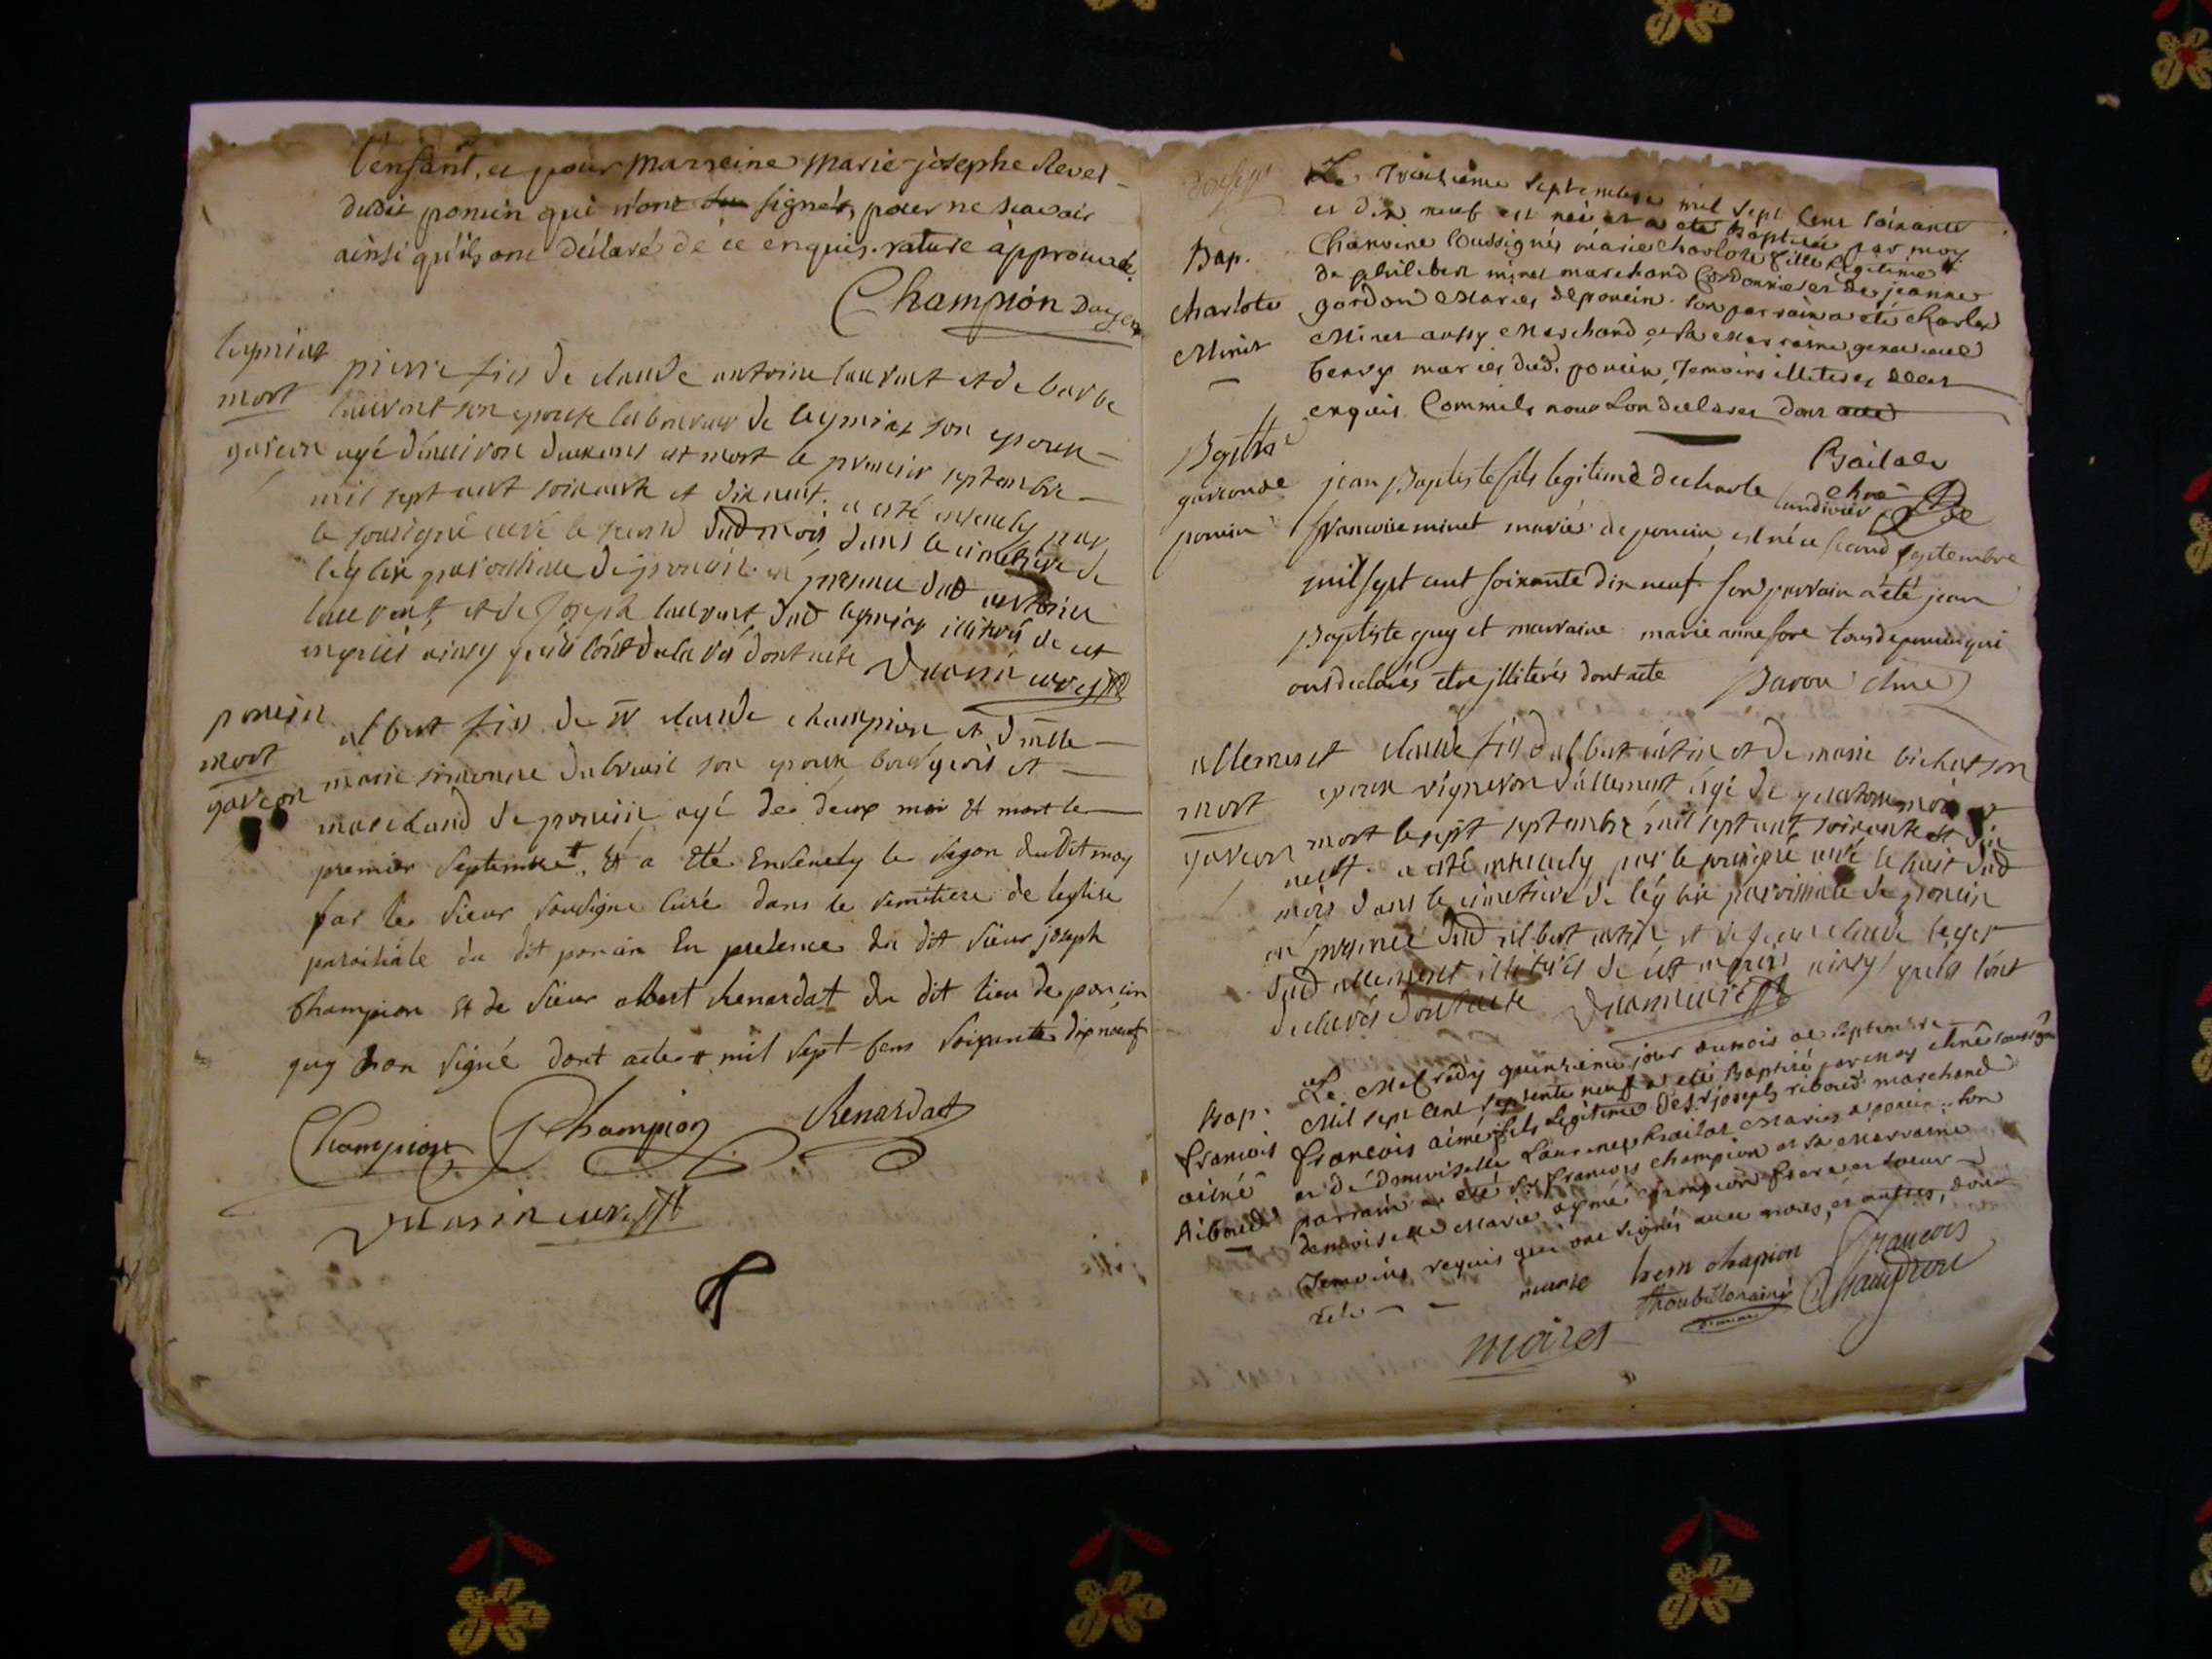 l'enfant, et pour marreine marie-josephe Revel
dudit poncin qui n'ont signés, pour ne scavoir
ainsi qu'ils ont déclaré de ce enquis. rature approuvée
Champion Doyen
leymiat
mort
garcon
pierre fils de claude antoine laurent et de barbe
laurent son epouse laboureur de leymiat son epouse
agé d'environ deux ans est mort le premier septembre
mil sept cent soixante et dix neuf. a esté ensevely par
le sousigné curé le second dud mois dans le cimetiere de
l'eglise parroissiale de poncin en presence dud antoine
laurent, et de joseph laurent dud leymiat illiterés de cet
enquis ainsy qu'ils l'ont declarés dont acte
curé
poncin
mort
garcon
albert fils de sr claude champion et d'mlle
marie simonne dubreuil son epouse bourgeois et
marchand de poncin agé de deux moi et mort le
premier Septembre +, et a eté Ensevely le segon dudit moy
par le sieur sousigne curé dans le semitiere de leglise
paroissiale du dit poncin En presence du dit sieur joseph
Champion et de sieur albert Renardat du dit lieu de poncin
quy on signé dont acte + mil sept cens soixante dix neuf
Champion JChampion Renardat
curé
Bap.
charlote
Minet
Le troisieme septembre mil sept cent soixante
et dix neuf est née et a eté baptisée par moy
Chanoine soussignés marie charlote fille legitime
de philibert minet marchand Cordonnier et de jeanne
gordon Maries de poncin. son parrain a eté charles
Minet aussy Marchand et sa Marraine
mariés dud. poncin, Temoins illiteres de ce
enquis Comme ils nous l'on declarer dont acte
garcon de
poncin
jean Baptiste fils legitime de charle
francoise minet mariés de poncin, est né ce second septembre
mil sept cent soixante dix neuf. son parrain a été jean
Baptiste guy et marraine marie anne fore tous de poncin qui
ons declarés etre illiterés dont acte
allement
mort
garcon
claude fils d'albert et de marie bichat son
epouse vigneron d'allement agé de quatorze mois est
mort le sept septembre mil sept cent soixante et dix
neuf. a esté ensevely par le sousigné curé le huit dud
mois dans le cimetiere de l'eglise parroissiale de poncin
en presence dud albert et de claude
dud allement illiterés de cet enquis ainsy qu'ils l'ont
declarés dont acte curé
Bap.
francois
aimé
Riboud
Le Mecredy quinzieme jour dumois de septembre
Mil sept cent septente neuf a eté Baptisé par moy chne soussigné
francois aimé fils legitime de sr joseph riboud marchand
et de demoiselle Laurence Mariés a poncin. son
parrain a eté sr francois champion et sa Marraine
demoiselle Marie aymé champion frere et soeur
Temoins requis qui ont signés avec nous, et autres, dont
acte
marie
francois
Champion